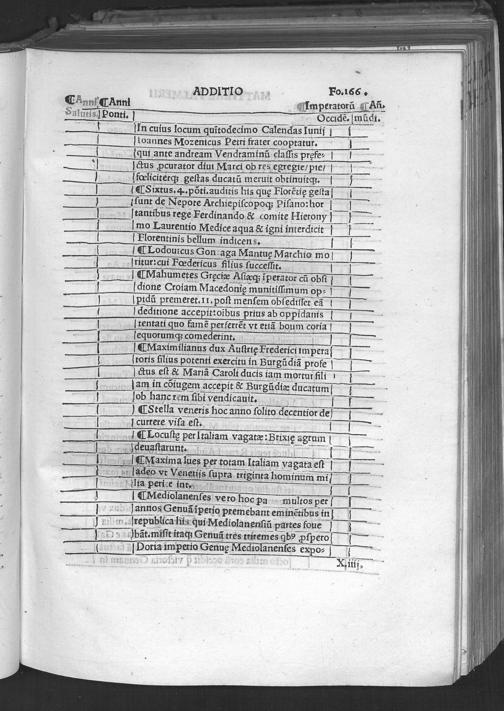 ADDITIO Fo.166.
¶Anni ¶Anni Imperatorũ ¶Añ.
Salutis. Ponti. Occidẽ. mũdi.
In cuius locum quĩtodecimo Calendas Iunij
Ioannes Mozenicus Petri frater cooptatur.
qui ante andream Vendraminũ classis pręfe-
ctus ꝓcurator diui Marci ob res egregie/pie/
fœliciterqȝ gestas ducatũ meruit obtinuitqȝ.
¶Sixtus.4.põti.auditis his quę Florẽtię gesta
sunt de Nepore Archiepiscopoqȝ Pisano:hor
tantibus rege Ferdinando & comite Hierony
mo Laurentio Medice aqua & igni interdicit
Florentinis bellum indicens.
¶Lodouicus Gon aga Mantuę Marchio mo
ritur:cui Fœdericus filius successit.
¶Mahumetes Gręcię Asięqȝ ĩperator cũ obsi
dione Croiam Macedonię munitissimum op-
pidũ premeret.11.post mensem obsedisset eã
deditione accepit:oibus prius ab oppidanis
tentati quo famẽ perferrẽt vt etiã boum coria
equorumqȝ comederint.
¶Maximilianus dux Austrię Frederici impera
toris filius potenti exercitu in Burgũdiã profe
ctus est & Mariã Caroli ducis iam mortui fili
am in cõiugem accepit & Burgũdię ducatum
ob hanc rem sibi vendicauit.
¶Stella veneris hoc anno solito decentior de
currere visa est.
¶Locustę per Italiam vagatę:Brixię agrum
deuastarunt.
¶Maxima lues per totam Italiam vagata est
adeo vt Venetijs supra triginta hominum mi
lia peri e int.
¶Mediolanenses vero hoc pa multos per
annos Genuã ĩperio premebant eminẽtibus in
republica his qui Mediolanensiũ partes foue
bãt.misit itaqȝ Genuã tres triremes qbꝰ ꝓspero
Doria imperio Genuę Mediolanenses expo-
X.iiij.